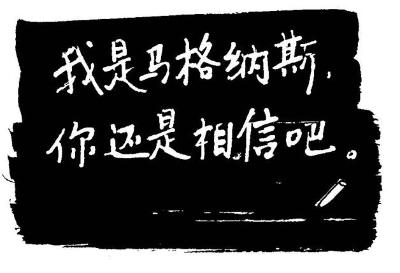 我是马格纳斯，
你还是相信吧。